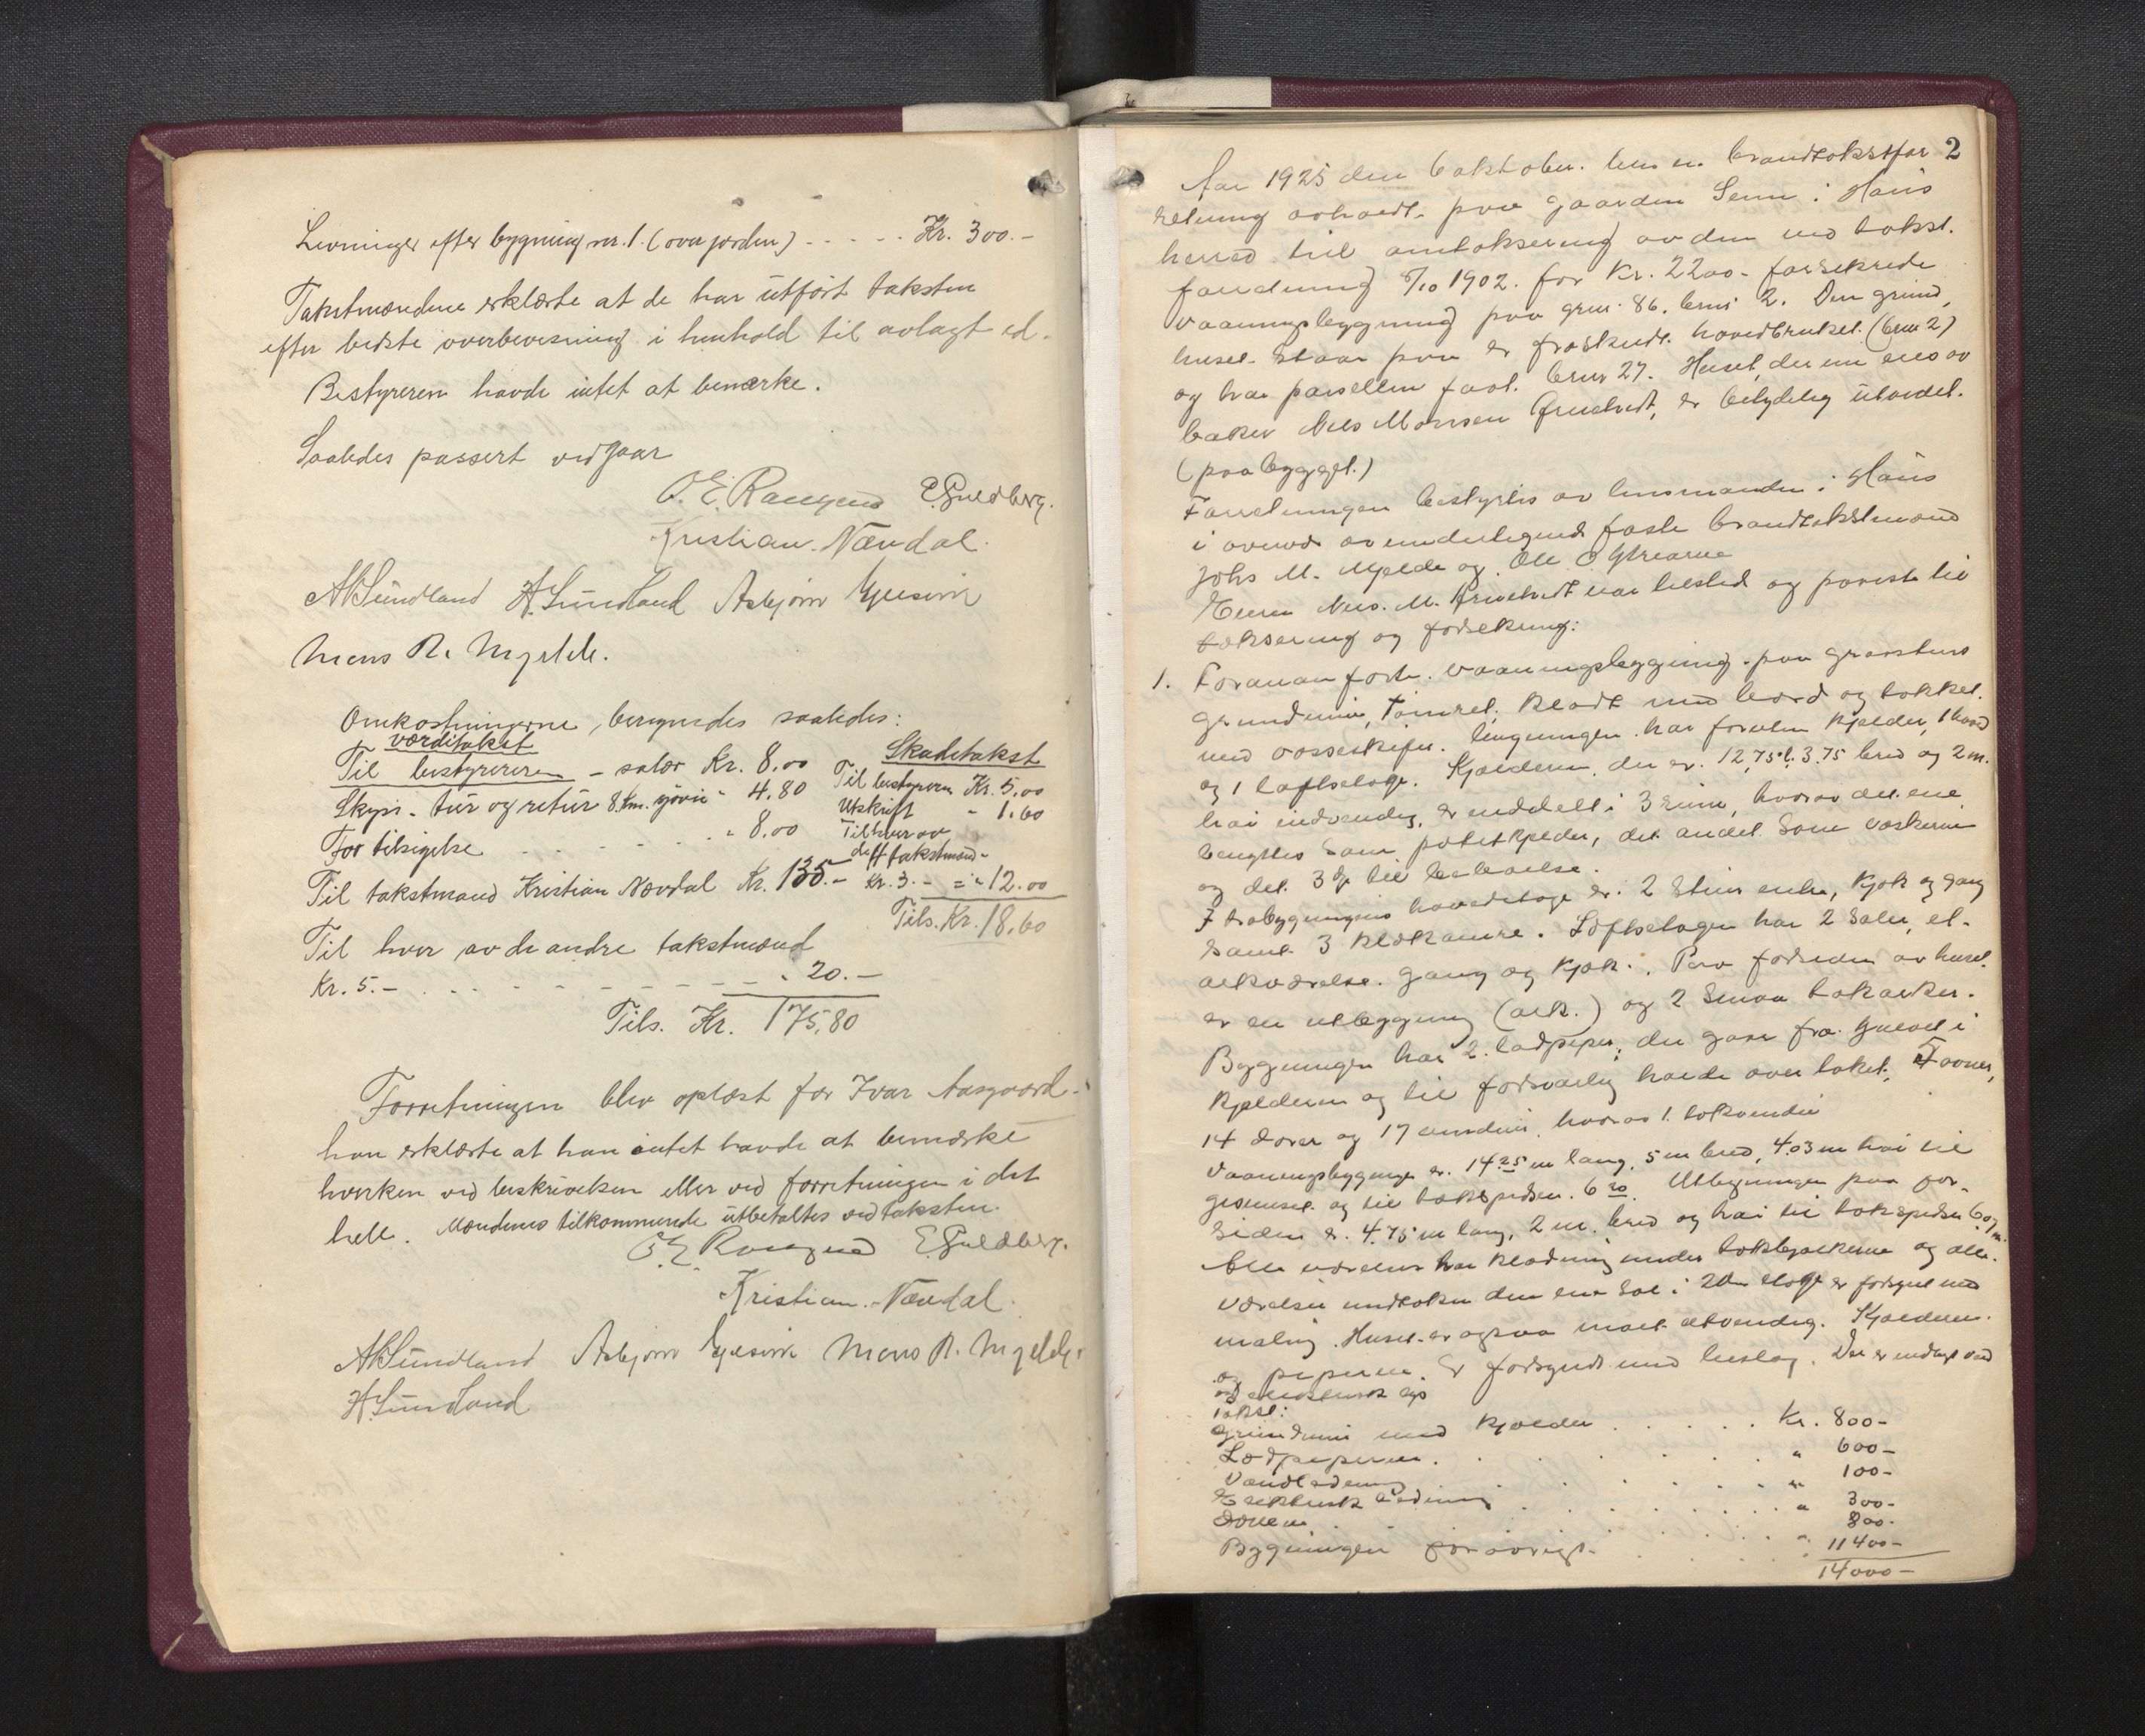 Levninger efter bygning nr. 1. (over jorden) . . . . . Kr. 300.-
Takstmændene erklærte at de har utført taksten
efter bedste overbevisning i henhold til avlagt ed.
Bestyreren havde intet at bemærke.
Saaledes passert vedgaar
O. E. E. Guldberg.
Kristian Nævdal.
A Sundland H. Sundland Asbjørn
Mons R. Mjelde.
Omkostningerne beregnedes saaledes:
værditakst Skadetakst
Til bestyreren - salær Kr. 8,00 Til bestyreren Kr. 5,00
Skyss - tur og retur 8 km. " 4,80 Utskrift " 1,60
For tilsigelse . . . . . . " 8,00 Til hver av
de 4 takstmænd -
Til takstmand Kristian Nævdal Kr. 135.- Kr. 3.- = " 12.00
Tils. Kr. 18,60
Til hver av de andre takstmænd
Kr. 5.- . . . . . . . . . " 20.-
Tils. Kr. 175,80
Forretningen blev oplæst for Ivar Aasgaard -
han erklærte at han intet havde at bemærke
hverken ved beskrivelsen eller ved forretningen i det
hele. Mændenes tilkommende utbetaltes ved taksten.
O. E. E. Guldberg.
Kristian Nævdal.
A Sundland Asbjørn Mons R. Mjelde.
H. Sundland
2
Aar 1925 den 6 oktober blev en brandtakstfor
retning avholdt paa gaarden Senn i Haus
herred til omtaksering av den ved takst.
forretning 8/10 1902 for Kr. 2200- forsikrede
vaaningsbygning paa gnr. 86. brnr 2. Den grund,
huset staar paa er fraskildt hovedbruket (brnr 2)
og har parsellen faat brnr 27. Huset, der nu eies av
baker Nils Monsen, er betydelig utvidet.
(paabygget.)
Forretningen bestyrtes av lensmanden i Haus
i overvær av undertegnede faste brandtakstmænd
Johs M. Mjelde og Ole O
Eieren Nils M. var tilsted og paaviste til
taksering og forsikring:
1. Forananførte vaaningsbygning paa graastens
grundmur, tømret, klædt med bord og tækket
med vosseskifer. Bygningen har foruten kjelder, 1 hoved
og 1 loftsetage. Kjelderen, der er 12,75 l. 3.75 bred og 2 m.
høi indvendig, er inddelt i 3 rum, hvorav det ene
benyttes som potetkjelder, det andet som vaskerum
og det 3dje til
I hovedetage er 2 stuer, kjøk og gang
samt 3 klækamre. Loftsetagen har 2 saler, et
arkværelse, gang og kjøk. Paa forsiden av huset
er en utbygning (ark.) og 2 smaa takarker.
Bygningen har 2 lodpiper, der gaar fra gulvet i
kjelderen og til forsvarlig høide over taket, 5 ovner,
14 dører og 17 vinduer, hvorav 1 takvindu
Vaaningsbygningen er 14.25 m lang, 5 m bred, 4,03 m høi til
gesimset og til takspidsen 6 20. Utbygningen paa for-
siden er 4.75 m lang, 2 m. bred og høi til takspidsen 6.07 m.
Alle værelser har klædning under takbjelkerne og alle
værelser undtaken den ene sal i 2den etage er forsynet med
maling. Huset er ogsaa malt utvendig. Kjelderen
og piperne er forsynet med beslag. Der er indlagt vand
og elektrisk lys
Takst:
Grundmur med kjelder . . . . . Kr. 800-
Lodpiperne . . . . . . . " 600-
Vandledning . . . . . . . " 100-
Elektrisk ledning . . . . . . . " 300-
Ovnene . . . . . . . 800-
Bygningen forøvrigt . . . . . " 11400-
14000-